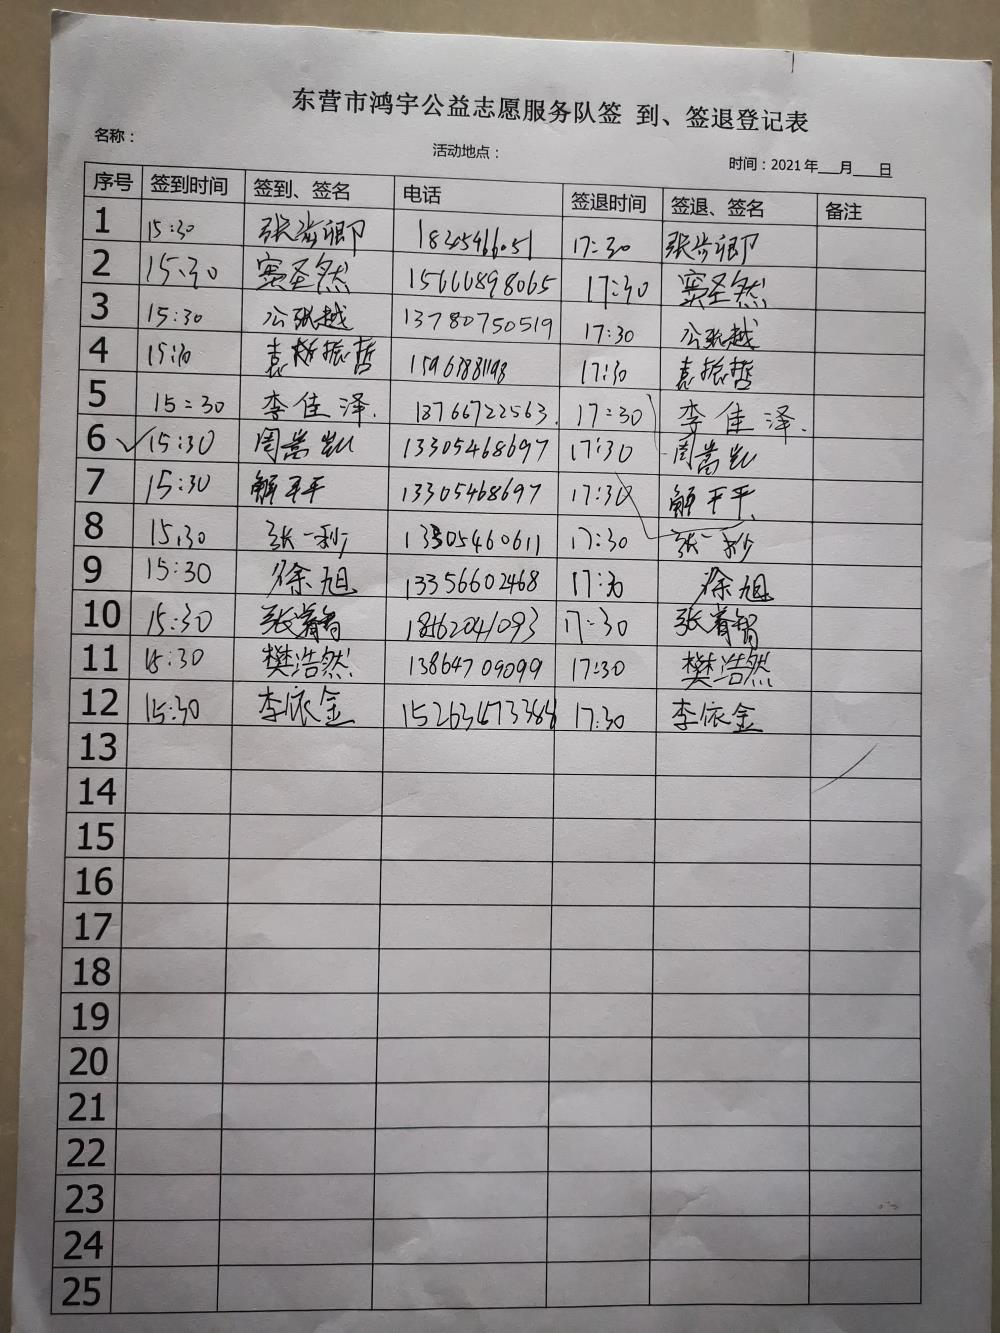 东营市鸿宇公益志愿服务队签 到、签退登记表
名称：
活动地点：
时间：2021年___月___日
序号 签到时间 签到、签名 电话 签退时间 签退、签名 备注
1 15:30 17:30
2 15:30 窦圣然 15666898065 17:30 窦圣然
3 15:30 公张越 13780750519 17:30 公张越
4 袁振哲 17:30 袁振哲
5 15:30 李佳泽. 18766722563. 17:30 李佳泽.
6 ✓ 15:30 周嵩凯 13305468697 17:30 周嵩凯
7 15:30 解平平 13305468697 17:30 解平平
8 15:30 张一 13305460611 17:30 张一
9 15:30 徐旭 13356602468 17:30 徐旭
10 15:30 张睿智 17:30 张睿智
11 15:30 樊浩然 13864709099 17:30 樊浩然
12 15:30 李依金 17:30 李依金
13
14
15
16
17
18
19
20
21
22
23
24
25